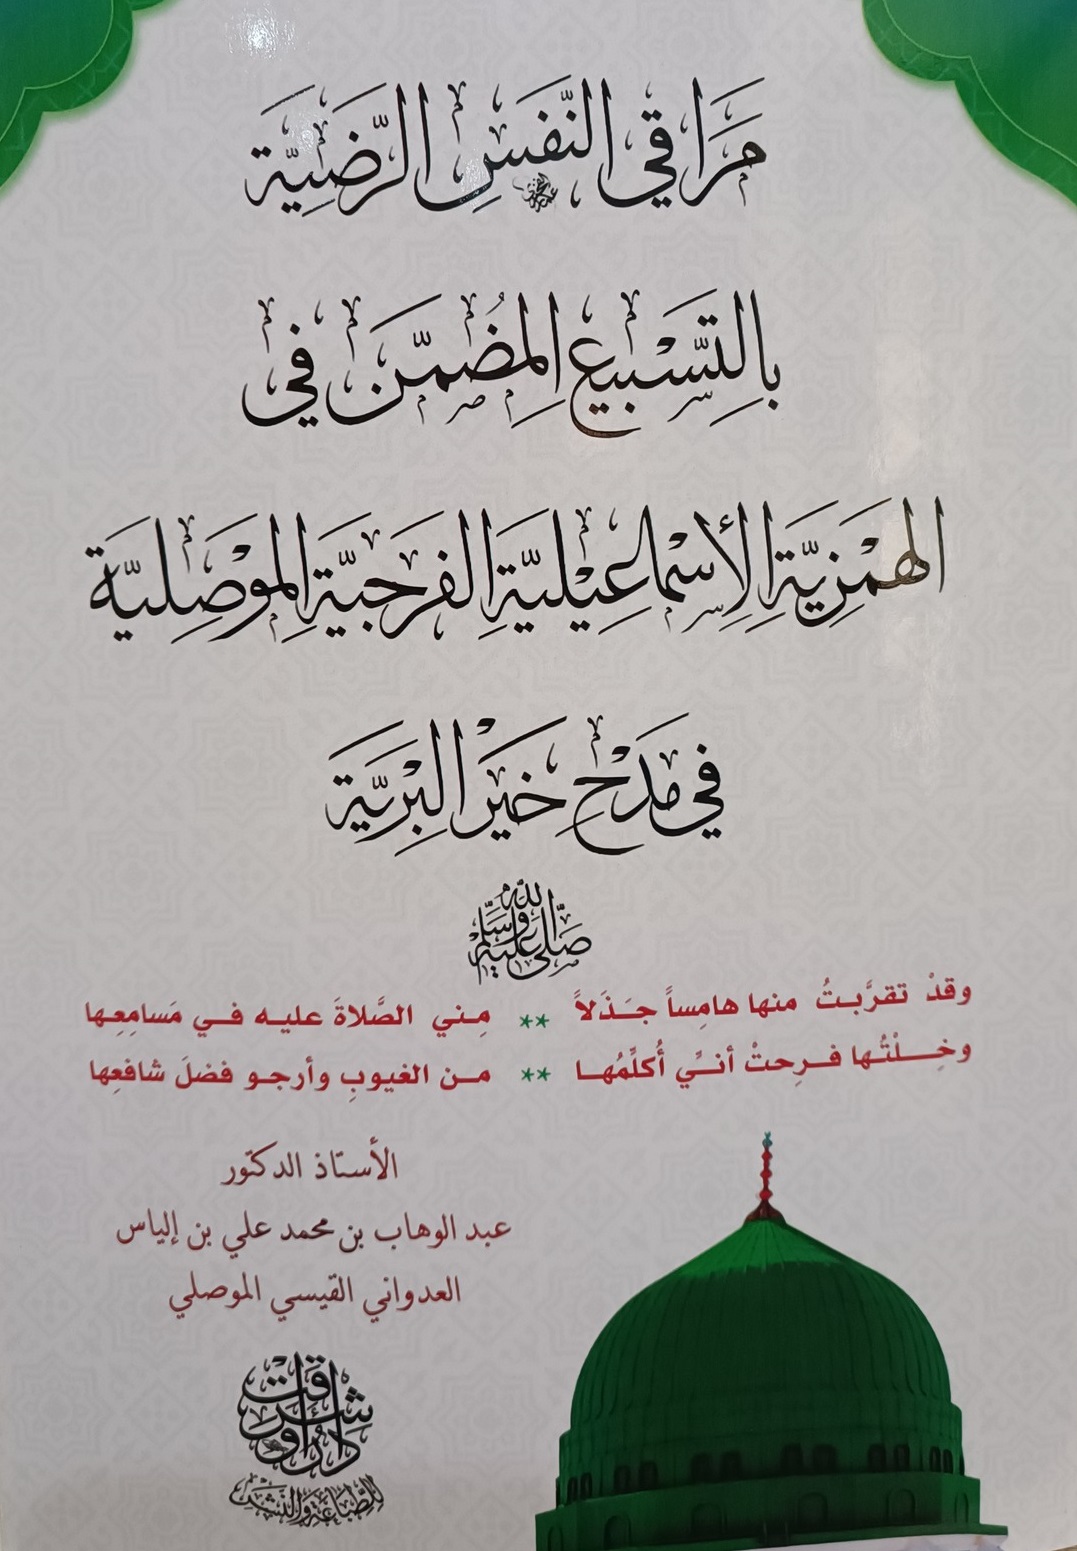 مَرَاقي النَّفَسِ الرَّضِيَّة
بِالتَّسْبِيعِ المُضَمَّن في
الهَمْزِيَّةِ الإِسْمَاعِيْلِيَّةِ الفَرَجِيَّةِ المَوْصِلِيَّة
في مَدْحِ خَيْرِ البَرِيَّة
صَلَّى اللهُ عَلَيْهِ وَسَلَّم
وقدْ تقرَّبتُ منها هامِساً جَذَلاً ** مِني الصَّلاةَ عليه في مَسامِعِها
وخِلْتُها فرِحتْ أنّي أُكلِّمُها ** من الغيوبِ وأرجو فضلَ شافعِها
الأستاذ الدكتور
عبد الوهاب بن محمد علي بن إلياس
العدواني القيسي الموصلي
للطباعة والنشر